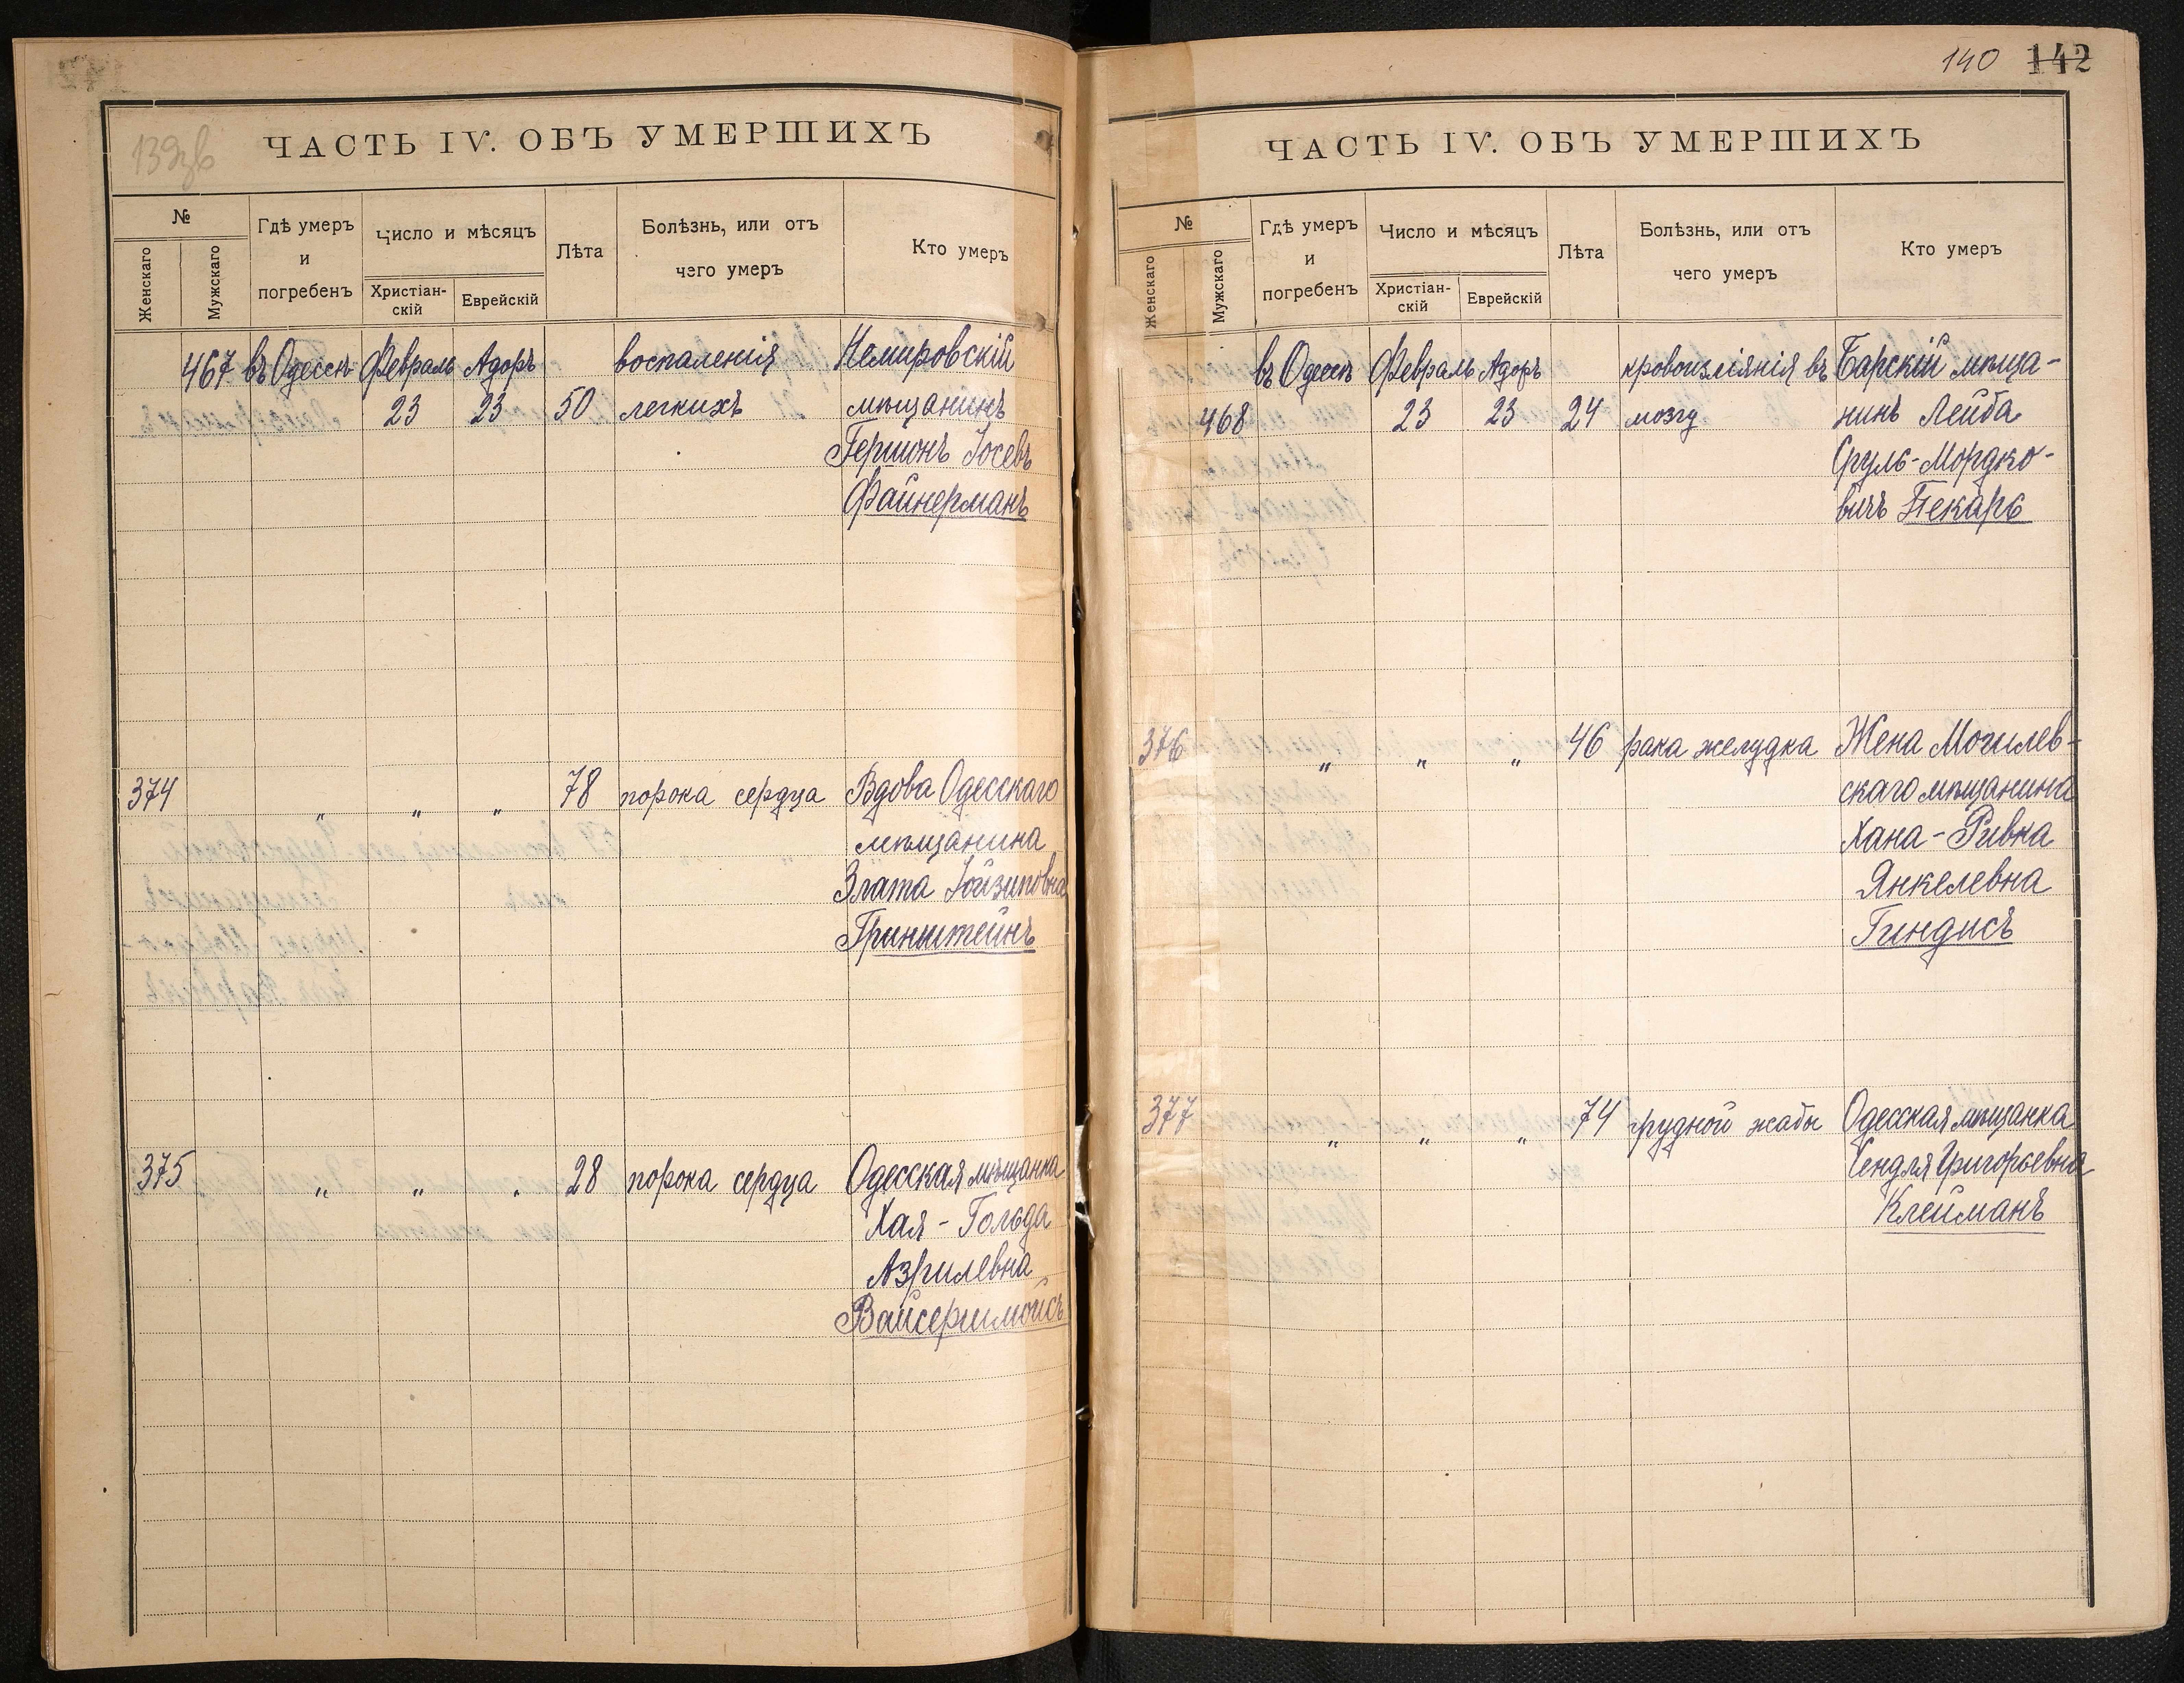 139зв
ЧАСТЬ IV. ОБЪ УМЕРШИХЪ
№
Женскаго
Мужскаго
Гдѣ умеръ
и
погребенъ
Число и мѣсяцъ
Христіан-
скій
Еврейскій
Лѣта
Болѣзнь, или отъ
чего умеръ
Кто умеръ
467 въ Одессѣ Февраль Адоръ воспаленія Немировскій
23 23 50 легкихъ мѣщанинъ
Гершонъ Іосевъ
Файнерманъ
374 „ „ „ 78 порока сердца Вдова Одесскаго
мѣщанина
Злата Іойзиповна
Гринштейнъ
375 „ „ „ 28 порока сердца Одесская мѣщанка
Хая-Гольда
Азрилевна
Вайсершмойсъ
140 142
ЧАСТЬ IV. ОБЪ УМЕРШИХЪ
№
Женскаго
Мужскаго
Гдѣ умеръ
и
погребенъ
Число и мѣсяцъ
Христіан-
скій
Еврейскій
Лѣта
Болѣзнь, или отъ
чего умеръ
Кто умеръ
въ Одессѣ Февраль Адоръ кровоизліянія въ Барскій мѣща-
468 23 23 24 мозгу нинъ Лейба
Сруль-Мордко-
вичъ Пекарь
376 „ „ „ 46 рака желудка Жена Могилев-
скаго мѣщанина
Хана-Ривка
Янкелевна
Гиндисъ
377 „ „ „ 74 грудной жабы Одесская мѣщанка
Григорьевна
Клейманъ